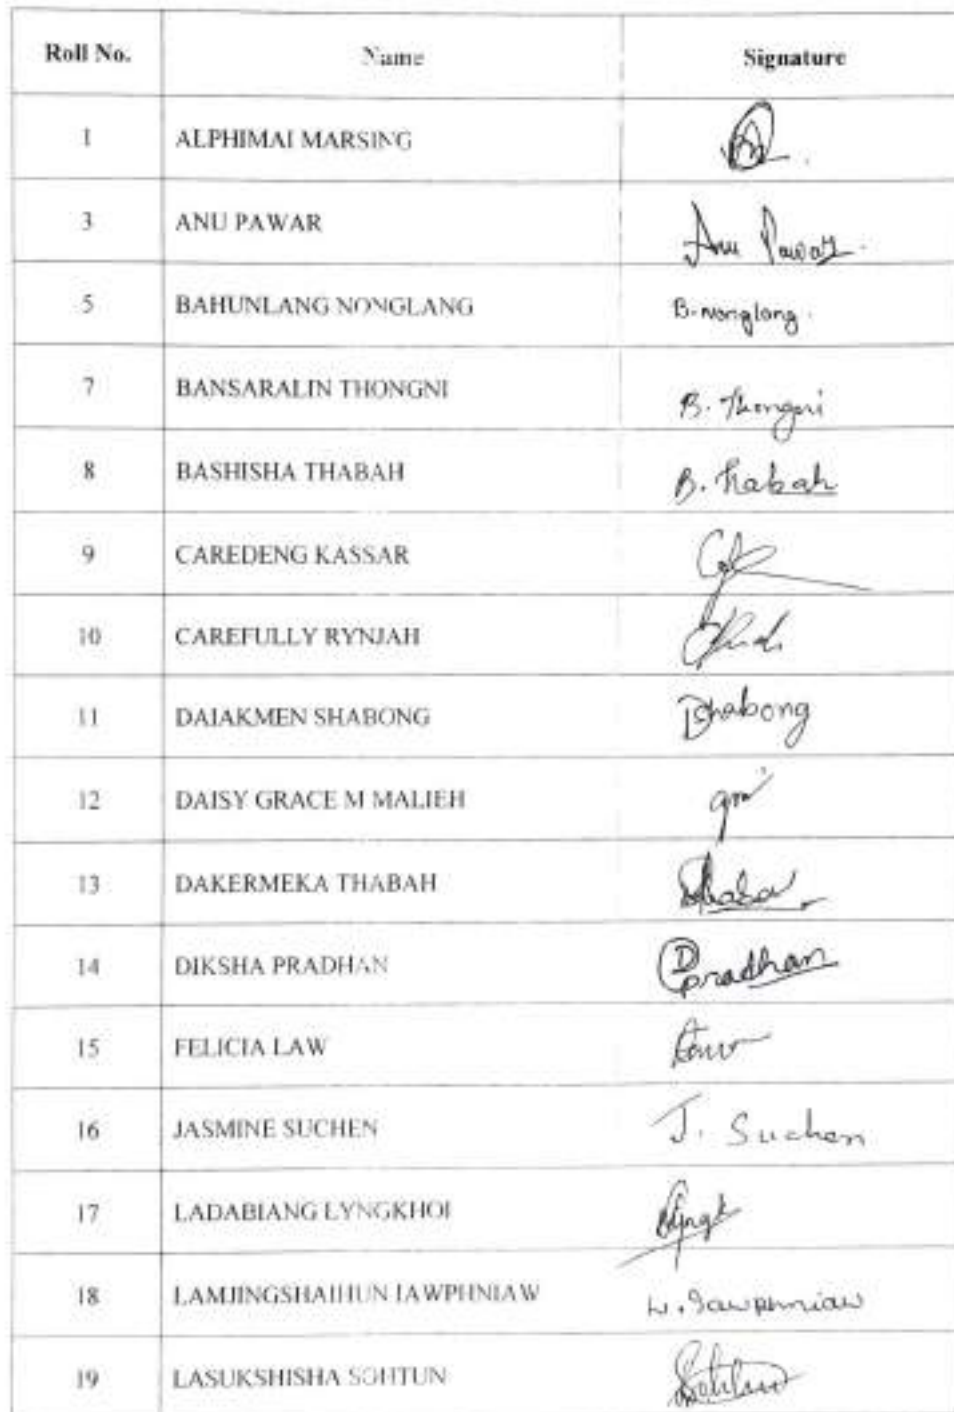 Roll No. Name Signature
1 ALPHIMAI MARSING
3 ANU PAWAR Anu Pawar
5 BAHUNLANG NONGLANG B. Nonglang.
7 BANSARALIN THONGNI B. Thongni
8 BASHISHA THABAH B. Thabah
9 CAREDENG KASSAR
10 CAREFULLY RYNJAH
11 DAIAKMEN SHABONG DShabong
12 DAISY GRACE M MALIEH
13 DAKERMEKA THABAH
14 DIKSHA PRADHAN D Pradhan
15 FELICIA LAW
16 JASMINE SUCHEN J. Suchen
17 LADABIANG LYNGKHOI
18 LAMJINGSHAIHUN IAWPHNIAW L. Iawphniaw
19 LASUKSHISHA SOHTUN